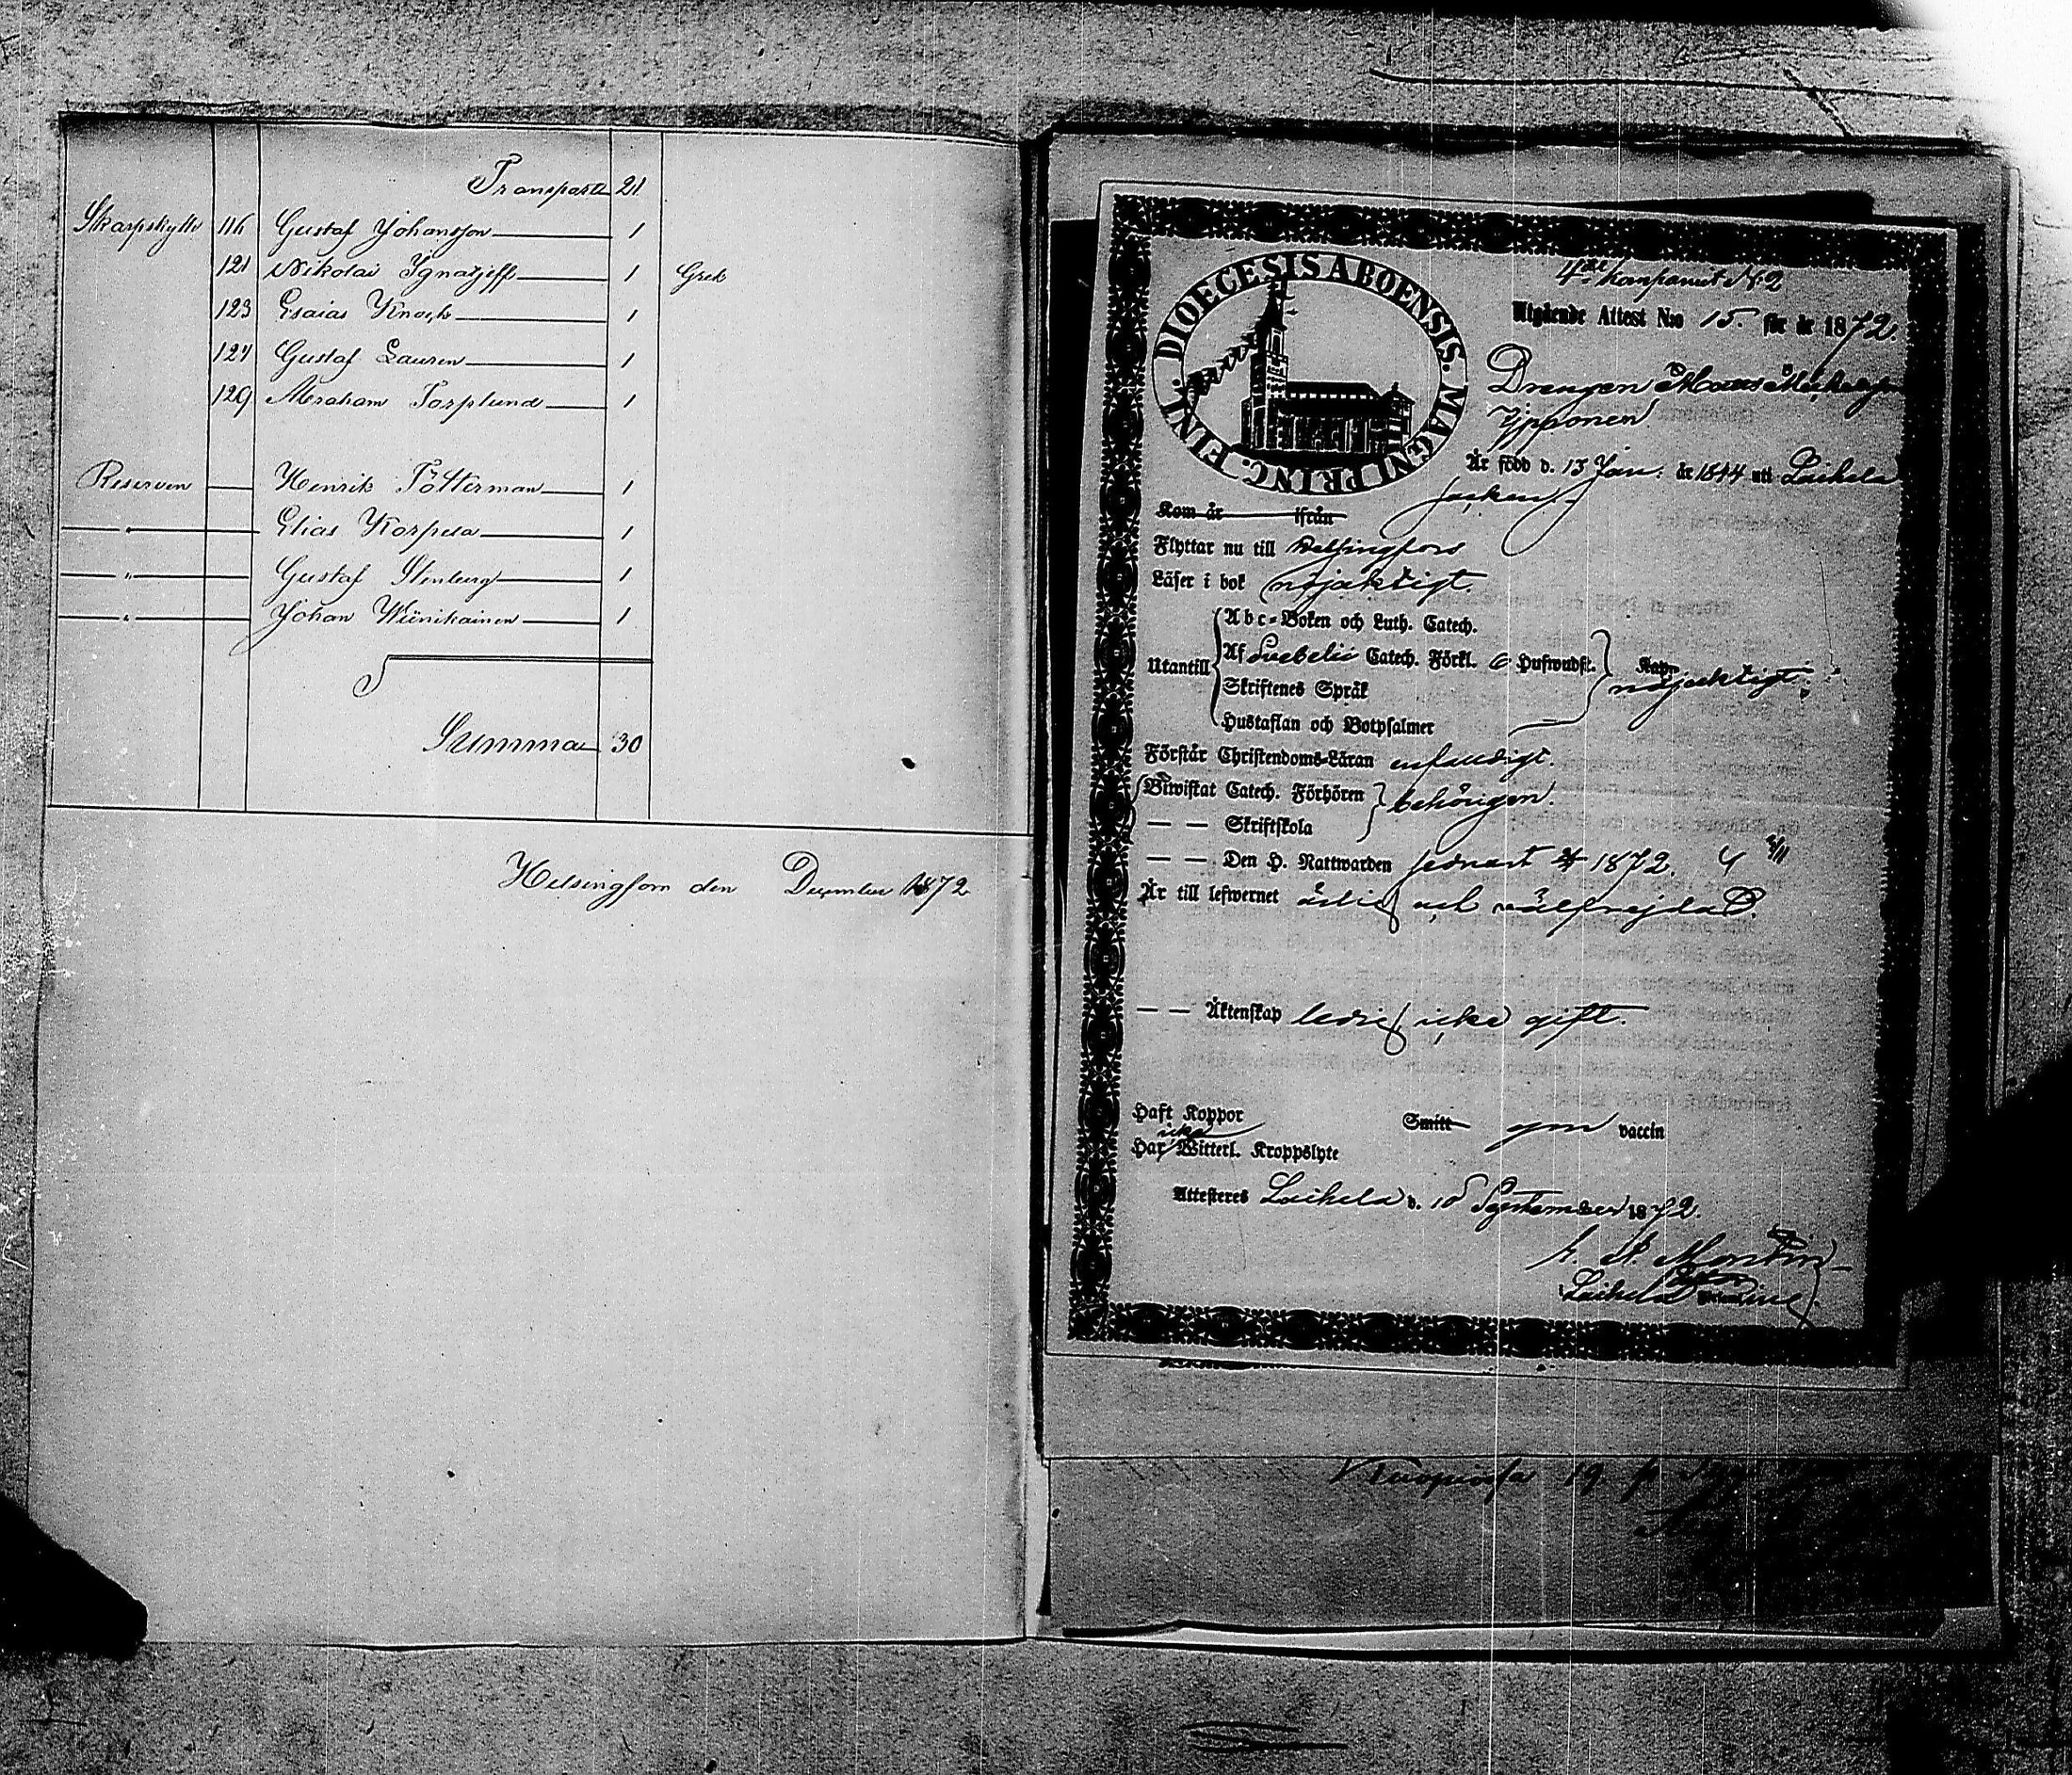 Transport 21
Skarpskytte 116 Gustaf Johansson 1
121 Nikolai Ignatjeff 1 Grek
123 Esaias Knock 1
127 Gustaf Lauren 1
129 Abraham Forslund 1
Reserven Henrik Fötterman 1
" Elias Korpela 1
" Gustaf Stenberg 1
" Johan Wiinikainen 1
Summa 30
Helsingfors den December 1872
DIOECESIS ABOENSIS. MAGNI PRINC. FINL.
4de Kompaniet N:2
Utgående Attest N:o 15. för år 1872.
Drengen
Ypponen
Är född d. 13 Jan. år 1844 uti Laihela
socken.
Kom år ifrån
Flyttar nu till Helsingfors
Läser i bok nöjaktigt.
Abc-Boken och Luth. Catech.
Utantill Af Svebelii Catech. Förkl. 6 Hufwudst. nöjaktigt.
Skriftenes Språk
Hustaflan och Botpsalmer
Förstår Christendoms-Läran enfaldigt.
Biwistat Catech. Förhören behörigen.
— — Skriftskola
— — Den H. Nattwarden senast 1872.
Är till lefwernet ärlig och välfrejdad.
— — Äktenskap ledig, icke gift.
Haft Koppor Smitt gm vaccin
icke
Har Witterl. Kroppslyte
Attesteres Laihela d. 10 September 1872.
Laihela